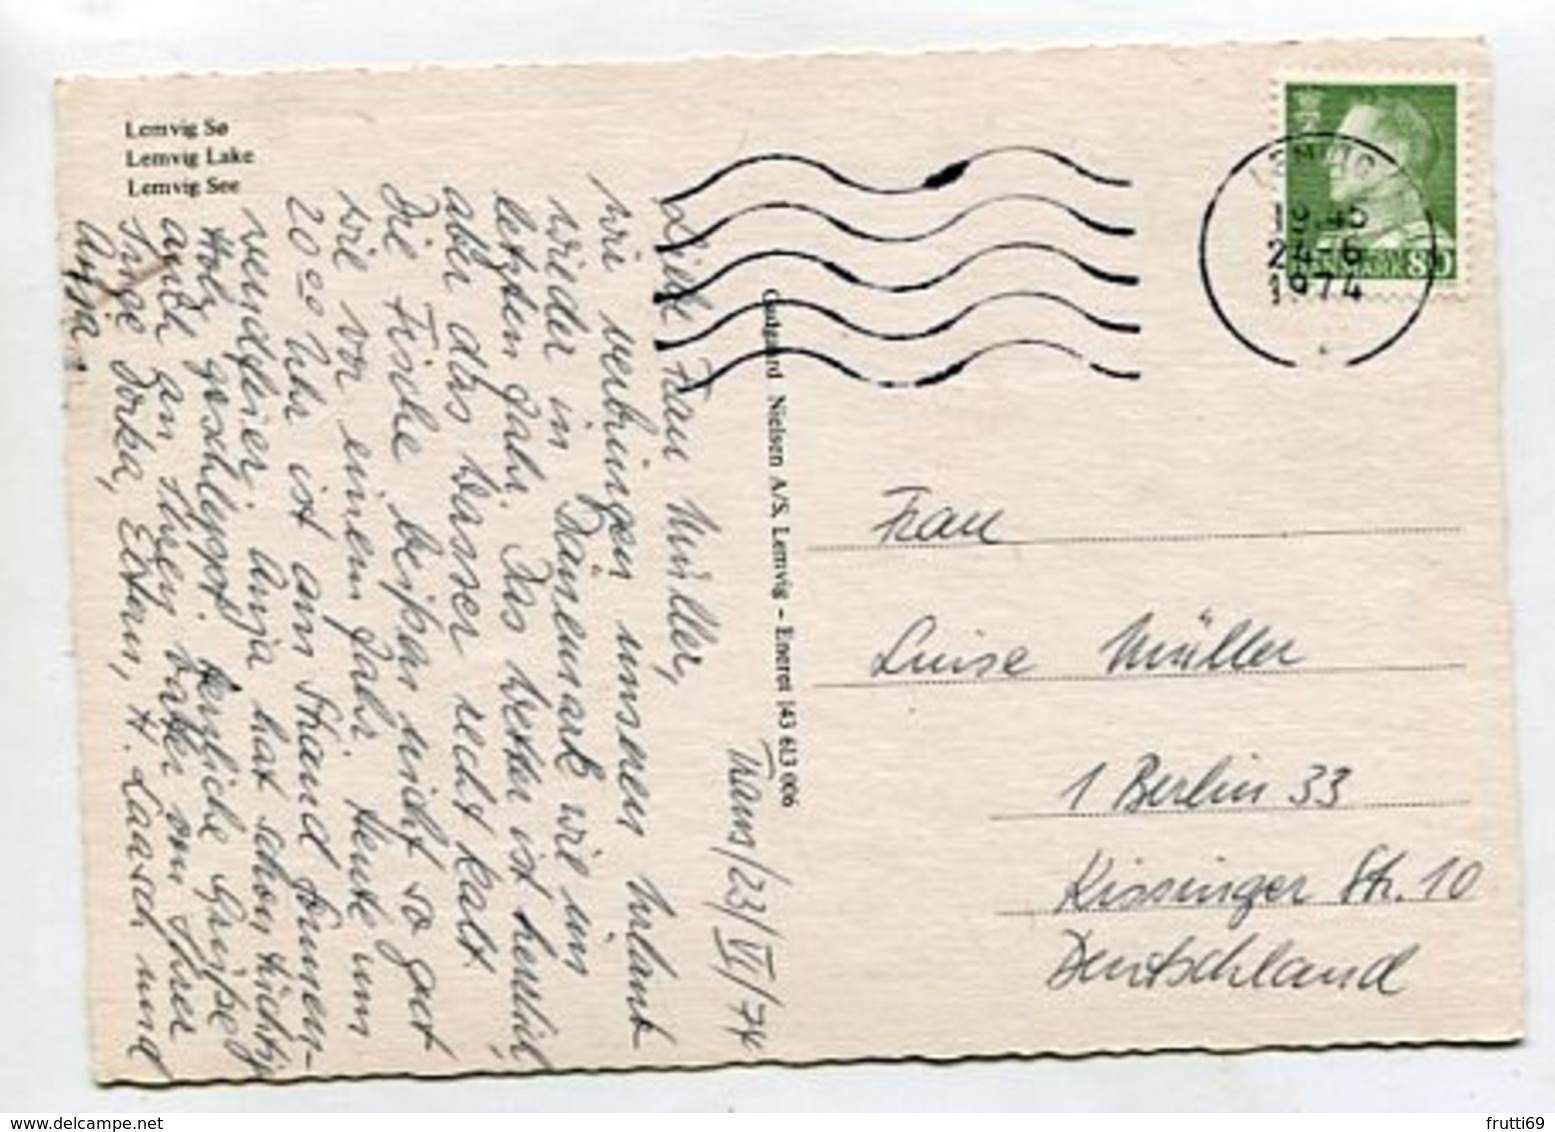 Lemvig Sø
Lemvig Lake
Lemvig See
Trans/23/VI/74
Liebe Frau Müller,
wir verbringen unseren Urlaub
wieder in Dänemark wie im
letzten Jahr. Das Wetter ist herrlich,
aber das Wasser recht kalt.
Die Fische beißen nicht so gut
wie vor einem Jahr. Heute um
20 00 Uhr ist am Strand Sonnen-
wendfeier, Anja hat schon tüchtig
Holz geschleppt. Herzliche Grüße
auch an Ihren Vater von Ihrer
Inge Dorka, Eltern, H. Laasch und
Anja.
Gudgaard Nielsen A/S. Lemvig - Eneret 143 613 006
LEMVIG
19.45
24.-6
1974
DANMARK 80
Frau
Luise Müller
1 Berlin 33
Kissinger Str. 10
Deutschland
frutti69